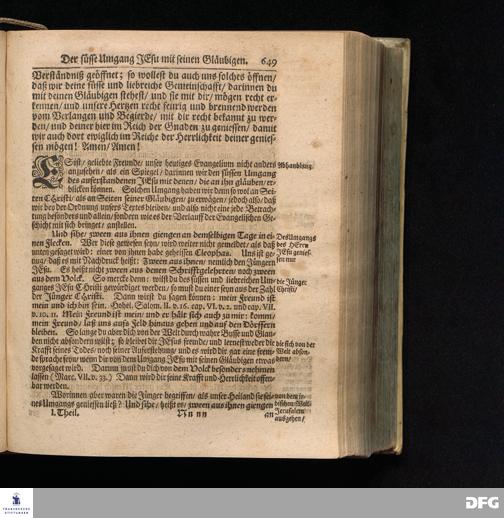 Der süsse Umgang JEsu mit seinen Gläubigen. 649
Verständniß geöffnet; so wollest du auch uns solches öffnen/
daß wir deine süsse und liebreiche Gemeinschafft/ darinnen du
mit deinen Gläubigen stehest/ und sie mit dir/ mögen recht er-
kennen/ und unsere Hertzen recht feurig und brennend werden
vom Verlangen und Begierde/ mit dir recht bekannt zu wer-
den/ und deiner hier im Reich der Gnaden zu geniessen/ damit
wir auch dort ewiglich im Reiche der Herrlichkeit deiner genies-
sen mögen! Amen/ Amen!
ESist/ geliebte Freunde/ unser heutiges Evangelium nicht anders
anzusehen/ als ein Spiegel/ darinnen wir den süssen Umgang
des auferstandenen JEsu mit denen/ die an ihn gläuben/ er-
blicken können. Solchen Umgang haben wir denn so wol an Sei-
ten CHristi/ als an Seiten seiner Gläubigen/ zu erwögen/ jedoch also/ daß
wir bey der Ordnung unsers Textes bleiben/ und also nicht eine jede Betrach-
tung besonders und allein/ sondern wie es der Verlauff der Evangelischen Ge-
schicht mit sich bringet/ anstellen.
Abhandlung.
Und sihe/ zween aus ihnen giengen an demselbigen Tage in ei-
nen Flecken. Wer diese gewesen seyn/ wird weiter nicht gemeldet/ als daß
unten gesaget wird: einer von ihnen habe geheissen Cleophas. Uns ist ge-
nug/ daß es mit Nachdruck heißt: Zween aus ihnen/ nemlich den Jüngern
JEsu. Es heißt nicht zween aus denen Schrifftgelehrten/ noch zween
aus dem Volck. So mercke denn: wilst du des süssen und liebreichen Um-
ganges JEsu CHristi gewürdiget werden/ so must du einer seyn aus der Zahl
der Jünger CHristi. Dann wirst du sagen können: mein Freund ist
mein und ich bin sein. Hohel. Salom. II. v. 16. cap. VI. v. 2. und cap. VII.
v. 10. 11. Mein Freund ist mein/ und er hält sich auch zu mir: komm/
mein Freund/ laß uns aufs Feld hinaus gehen und auf den Dörffern
bleiben. So lange du aber dich von der Welt durch wahre Busse und Glau-
ben nicht absondern wilst; so bleibet dir JEsus fremde/ und lernest weder die
Krafft seines Todes/ noch seiner Auferstehung/ und es wird dir gar eine frem-
de sprache seyn/ wenn dir von dem Umgang JEsu mit seinen Gläubigen etwas
vorgesaget wird. Darum must du dich von dem Volck besonders nehmen
lassen (Marc. VII. v. 33.) Dann wird dir seine Krafft und Herrlichkeit offen-
bar werden.
Des Umgangs
des HErrn
JEsu genies-
sen nur
die Jünger
Christi/
die sich von der
Welt abson-
dern/
Worinnen aber waren die Jünger begriffen/ als unser Heiland sie sei-
nes Umgangs geniessen ließ? Und sihe/ heißt es/ zween aus ihnen giengen
I. Theil. Nn nn an
von dem jü-
dischen Welt-
Jerusalem
ausgehen/
FRANCKESCHE
STIFTUNGEN
DFG